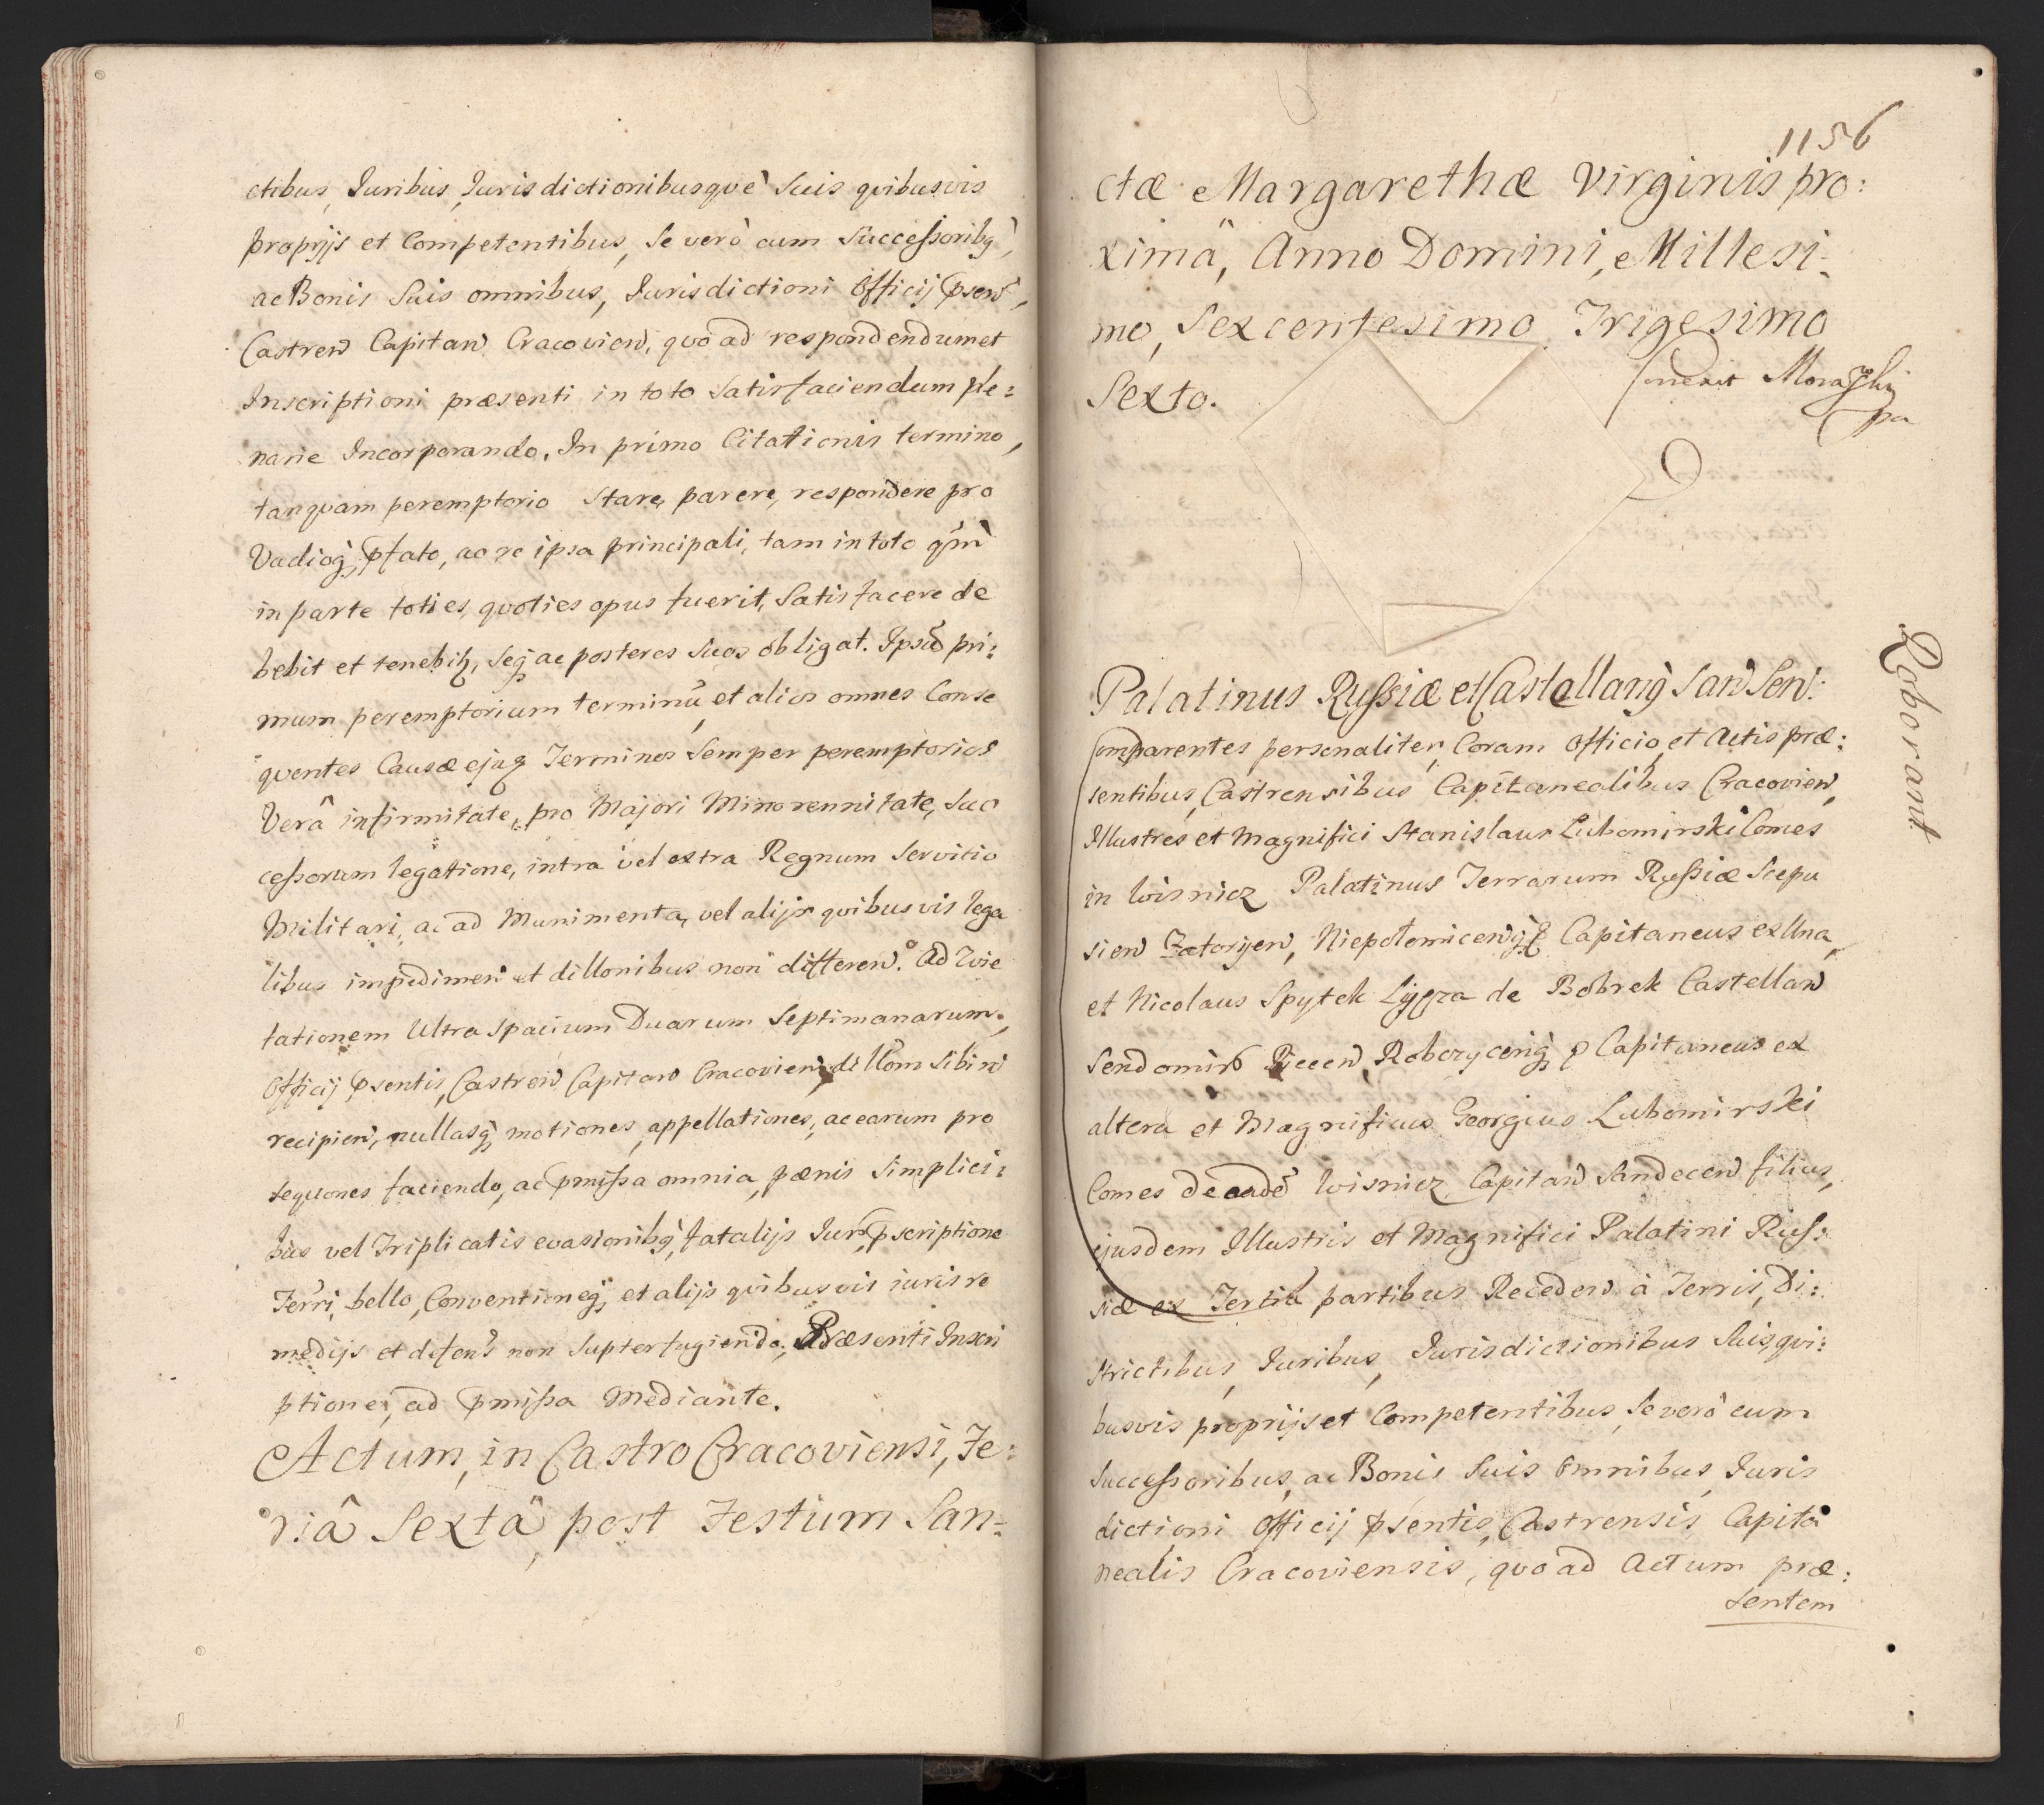 ctibus, Juribus, Jurisdictionibusquè Suis qvibusvis
proprijs et Competentibus, Se verò cum Successoribq,
ac Bonis Suis omnibus, Jurisdictioni Officij psen,
Castren Capitan Cracovien, quo ad respondendum et
Inscriptioni præsenti in toto Satisfaciendum ple:
narie Incorporando. In primo Citationis termino,
tanqvam peremptorio Stare, parere, respondere pro
Vadioq pfato, ac re ipsa principali, tam in toto qm
in parte toties, qvoties opus fuerit, Satisfacere de
bebit et tenebit, seq ac posteros Suos obligat. Ipsu pri:
mum peremptorium terminu, et alios omnes Conse
qventes Causæ ejusq Terminos Semper peremptorios
Verâ infirmitate, pro Majori Minorennitate, Suc
cessorum legatione, intra vel extra Regnum Servitio
Militari, ac ad Munimenta, vel alijs qvibusvis lega
libus impedimen et dillonibus non differen. Ad
tationem Ultra Spacium Duarum Septimanarum.,
Officij psentis, Castren Capitan Cracovien, dillom Sibi n
recipien, nullasq motiones, appellationes, ac earum pro
sequones faciendo, ac pmissa omnia, pænis Simplici:
bus vel Triplicatis evasionibq, fatalijs Juris pscriptione
Terri, bello, Conventioneq, et alijs qvibusvis iuris re
medijs et defens non Supterfugiendo, Præsenti Inscri
ptione, ad pmissa Mediante.
Actum, in Castro Cracoviensi, Fe:
riâ Sextâ, post Festum San=
1156
ctæ Margarethæ Virginis pro:
ximâ, Anno Domini, Millesi:
mo, Sexcentesimo Trigesimo
Sexto.
Palatinus Russiæ et Castellanq San Sen:
Roborant
Comparentes personaliter, Coram Officio et Actis præ:
sentibus, Castrensibus Capitanealibus Cracovien,
Illustres et Magnifici Stanislaus Lubomirski Comes
in Wisnicz Palatinus Terrarum Russiæ Scepu
sien Zatorijen, Niepołomicen Capitaneus ex Una,
et Nicolaus Spytek Lygęza de Bobrek Castellan
Sendomir Biecen, Capitaneus ex
altera et Magnificus Georgius Lubomirski
Comes de eade Wisnicz Capitan Sandecen filius,
ejusdem Illustris et Magnifici Palatini Rus:
siæ ex Tertia partibus Receden à Terris, Di:
strictibus, Juribus, Jurisdictionibus Suis, qvi:
busvis proprijs et Competentibus, Se verò cum
Successoribus, ac Bonis Suis Omnibus, Juris
dictioni Officij psentis, Castrensis Capita
nealis Cracoviensis, qvo ad Actum præ:
sentem